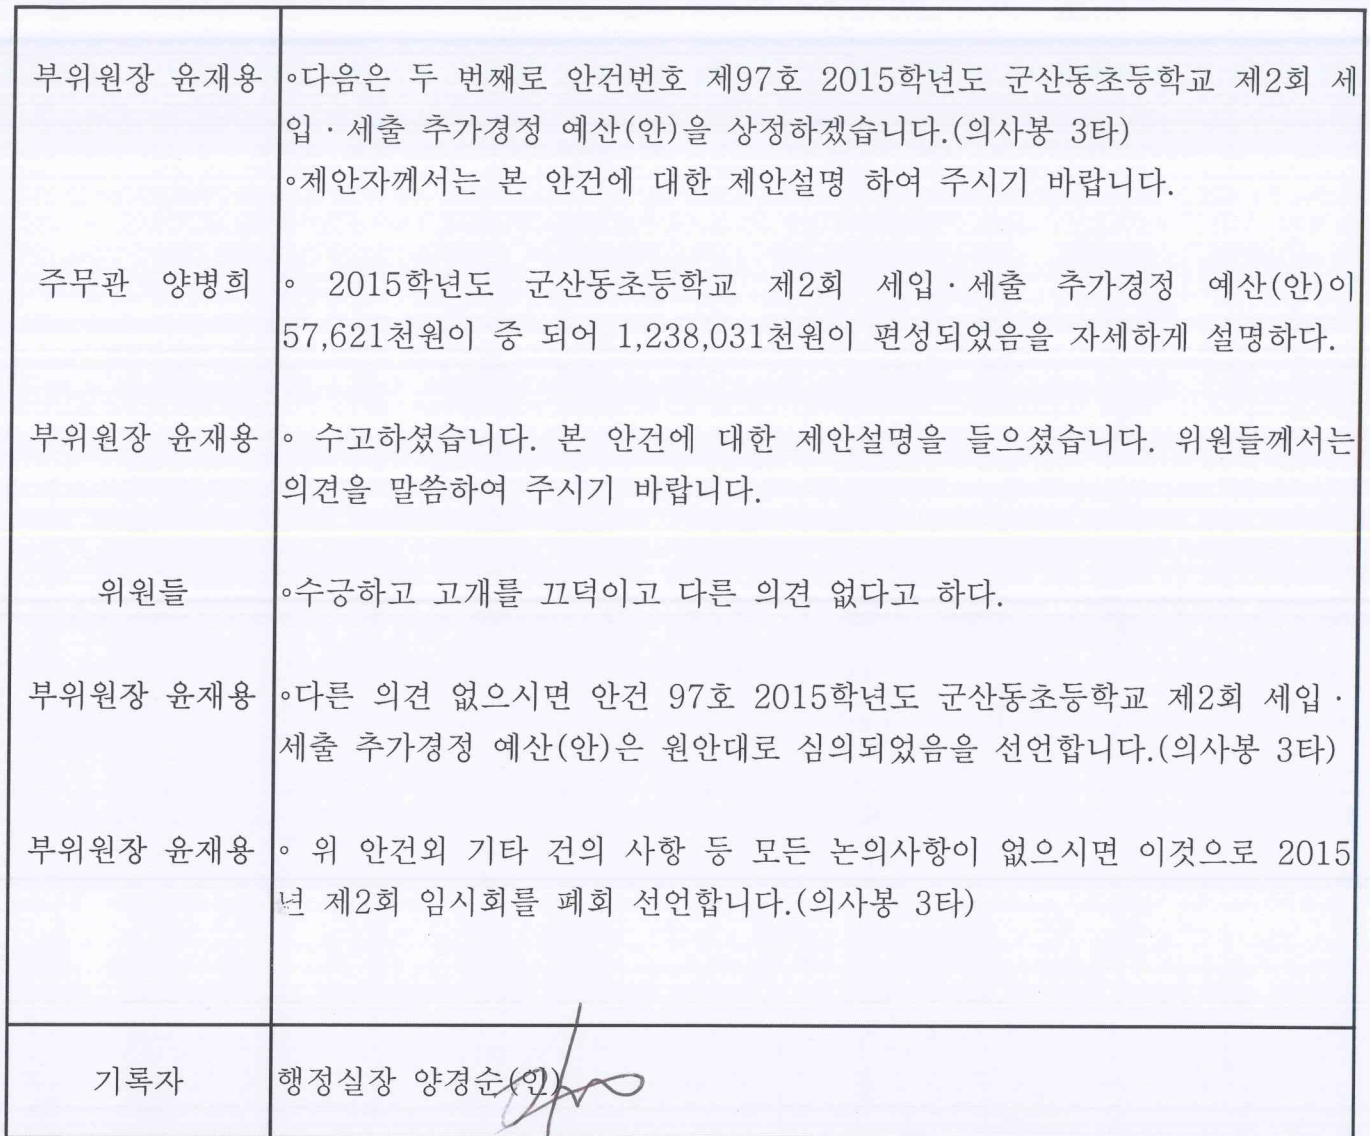 부위원장 윤재용 ◦다음은 두 번째로 안건번호 제97호 2015학년도 군산동초등학교 제2회 세
입·세출 추가경정 예산(안)을 상정하겠습니다.(의사봉 3타)
◦제안자께서는 본 안건에 대한 제안설명 하여 주시기 바랍니다.
주무관 양병희 ◦ 2015학년도 군산동초등학교 제2회 세입·세출 추가경정 예산(안)이
57,621천원이 증 되어 1,238,031천원이 편성되었음을 자세하게 설명하다.
부위원장 윤재용 ◦ 수고하셨습니다. 본 안건에 대한 제안설명을 들으셨습니다. 위원들께서는
의견을 말씀하여 주시기 바랍니다.
위원들 ◦수긍하고 고개를 끄덕이고 다른 의견 없다고 하다.
부위원장 윤재용 ◦다른 의견 없으시면 안건 97호 2015학년도 군산동초등학교 제2회 세입·
세출 추가경정 예산(안)은 원안대로 심의되었음을 선언합니다.(의사봉 3타)
부위원장 윤재용 ◦ 위 안건외 기타 건의 사항 등 모든 논의사항이 없으시면 이것으로 2015
년 제2회 임시회를 폐회 선언합니다.(의사봉 3타)
기록자 행정실장 양경순(인)